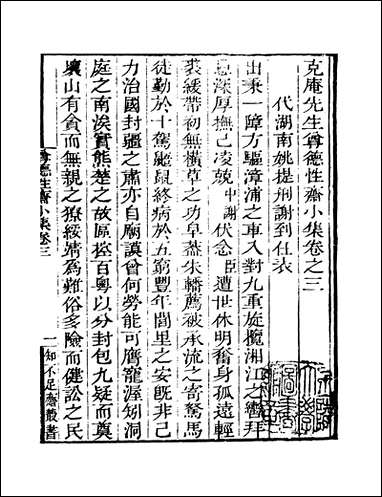 克庵先生尊德性齋小集卷之三
代湖南姚提刑謝到任表
出秉一障方驅漳浦之車入對九重旋攬湘江之轡拜
恩深厚撫己凌兢中謝伏念臣遭世休明奮身孤遠輕
裘緩帶初無橫草之功皁蓋朱轓薦被承流之寄駑馬
徒勤於十駕鼯鼠終病於五窮豐年閭里之安既非己
力治國封疆之肅亦自廟謨曾何勞能可膺寵渥矧洞
庭之南湊實熊楚之故區控百粤以分封包九疑而奠
壤山有貪而無親之獠綏靖為難俗多險而健訟之民
尊德性齋小集卷三
一知不足齋叢書